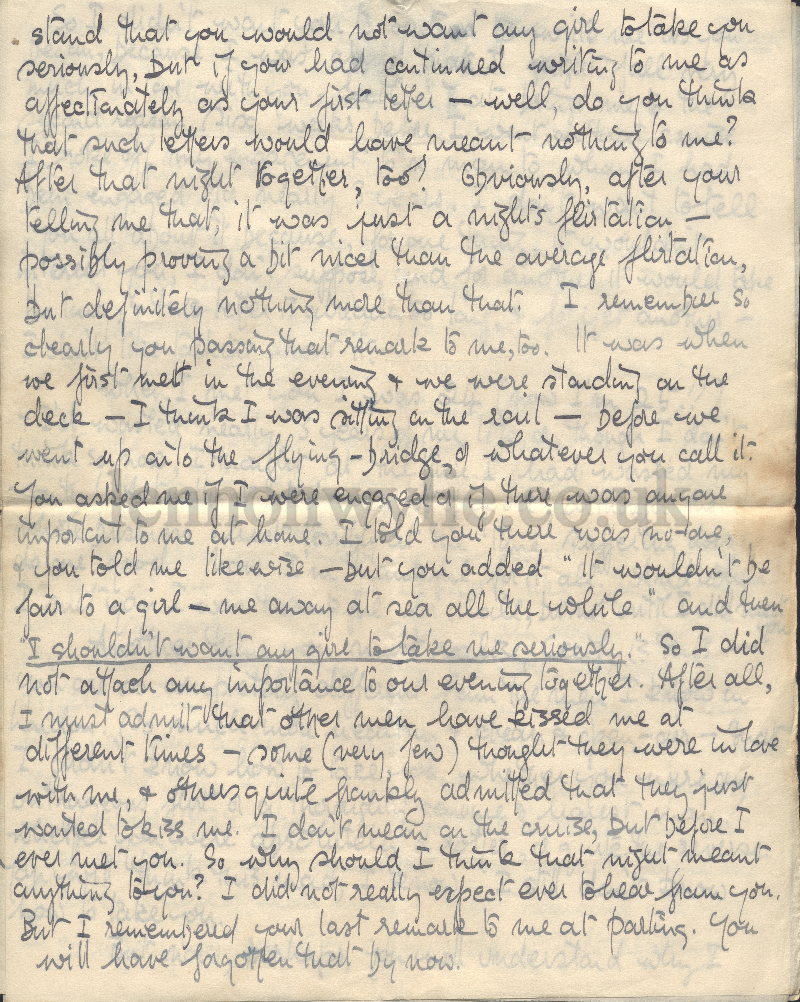 stand that you would not want any girl to take you
seriously, but if you had continued writing to me as
affectionately as your first letter — well, do you think
that such letters would have meant nothing to me?
After that night together, too! Obviously, after your
telling me that, it was just a night's flirtation —
possibly proving a bit nicer than the average flirtation,
but definitely nothing more than that. I remember so
clearly you passing that remark to me, too. It was when
we first met in the evening & we were standing on the
deck — I think I was sitting on the rail — before we
went up onto the flying-bridge, or whatever you call it.
You asked me if I were engaged or if there was anyone
important to me at home. I told you there was no-one,
& you told me likewise — but you added "It wouldn't be
fair to a girl — me away at sea all the while" and then
"I shouldn't want any girl to take me seriously." So I did
not attach any importance to our evening together. After all,
I must admit that other men have kissed me at
different times — some (very few) thought they were in love
with me, & others quite frankly admitted that they just
wanted to kiss me. I don't mean on the cruise, but before I
ever met you. So why should I think that night meant
anything to you? I did not really expect ever to hear from you.
But I remembered your last remark to me at parting. You
will have forgotten that by now.